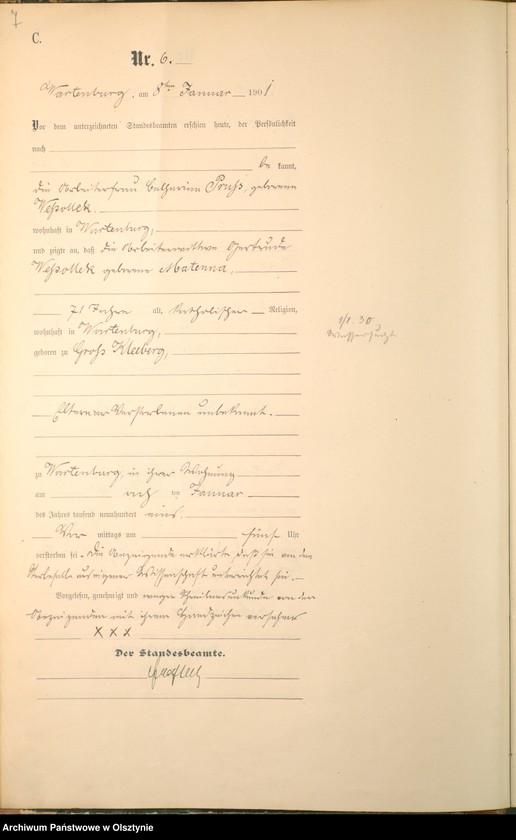 7
C.
Nr. 6.
Wartenburg, am 8ten Januar 1901
Vor dem unterzeichneten Standesbeamten erschien heute, der Persönlichkeit
nach
be kannt,
die Arbeiterfrau Catharina Pruß, geborene
Weßollek
wohnhaft in Wartenburg,
und zeigte an, daß die Arbeiterwittwe Gertrude
Weßollek geborene Matenna,
71 Jahre alt, katholischer Religion,
wohnhaft in Wartenburg,
geboren zu Groß Kleeberg,
1/1. 30
Wassersucht
Eltern der Verstorbenen unbekannt.
zu Wartenburg, in ihrer Wohnung
am ten Januar
des Jahres tausend neunhundert eins,
Vor mittags um fünf Uhr
verstorben sei. Die Anzeigende erklärte daß sie von dem
Sterbefalle aus eigener Wissenschaft unterrichtet sei.
Vorgelesen, genehmigt und wegen von der
Anzeigenden mit ihrem Handzeichen versehen
x x x
Der Standesbeamte.
Archiwum Państwowe w Olsztynie